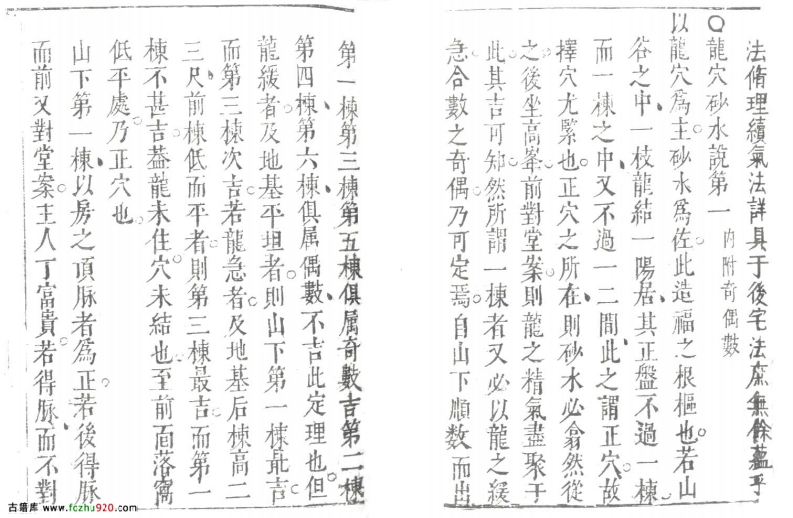 法脩理續氣法詳具于後宅法庶無餘蘊乎
○龍穴砂水說第一 內附奇偶數
以龍穴爲主砂水爲佐此造福之根樞也若山
谷之中一枝龍結一陽居其正盤不過一棟
而一棟之中又不過一二間此之謂正穴故
擇穴尤緊也正穴之所在則砂水必翕然從
之後坐高峯前對堂案則龍之精氣盡聚于
此其吉可知然所謂一棟者又必以龍之緩
急合數之奇偶乃可定焉自山下順數而出
第一棟第三棟第五棟俱属奇數吉第二棟
第四棟第六棟俱属偶數不吉此定理也但
龍緩者及地基平坦者則山下第一棟最吉
而第三棟次吉若龍急者及地基后棟高二
三尺前棟低而平者則第三棟最吉而第一
棟不甚吉葢龍未住穴未結也至前面落窩
低平處乃正穴也
山下第一棟以房之頂脉者爲正若後得脉
而前又對堂案主人丁富貴若得脉而不對
古籍库 www.fczhu920.com